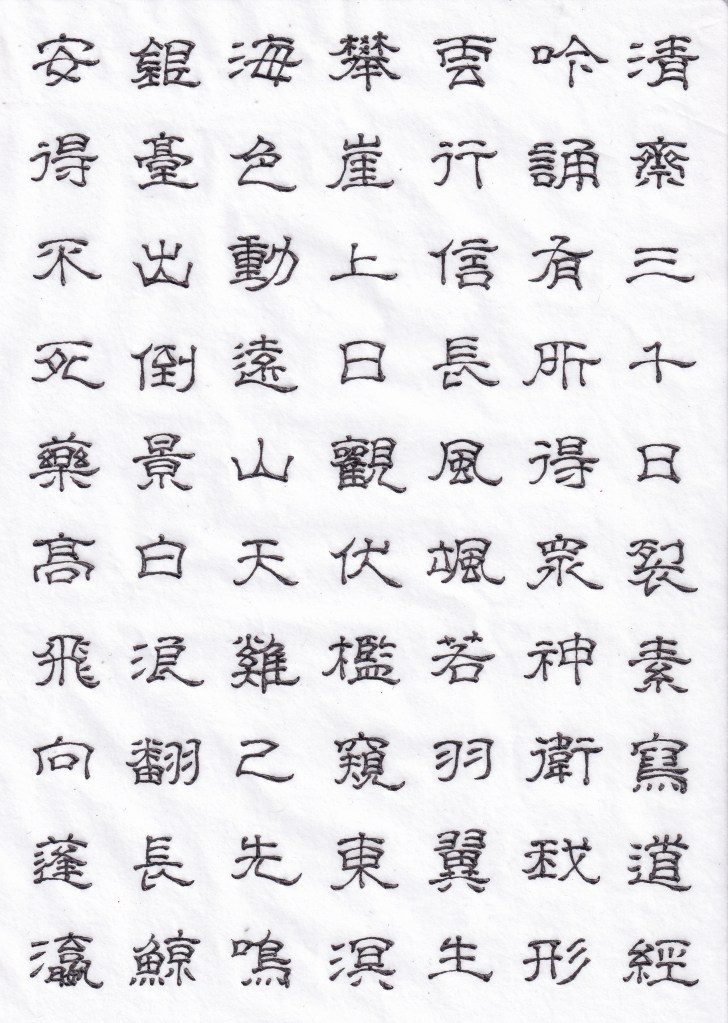 清齋三千日裂素寫道經
吟誦有所得眾神衛我形
雲行信長風颯若羽翼生
攀崖上日觀伏檻窺東溟
海色動遠山天雞已先鳴
銀臺出倒景白浪翻長鯨
安得不死藥高飛向蓬瀛